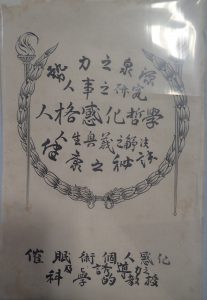 力之泉源
人事之研究
人格感化哲學
人生奧義之解決
健康之秘訣
催眠術個人感化
科學的誘導教授